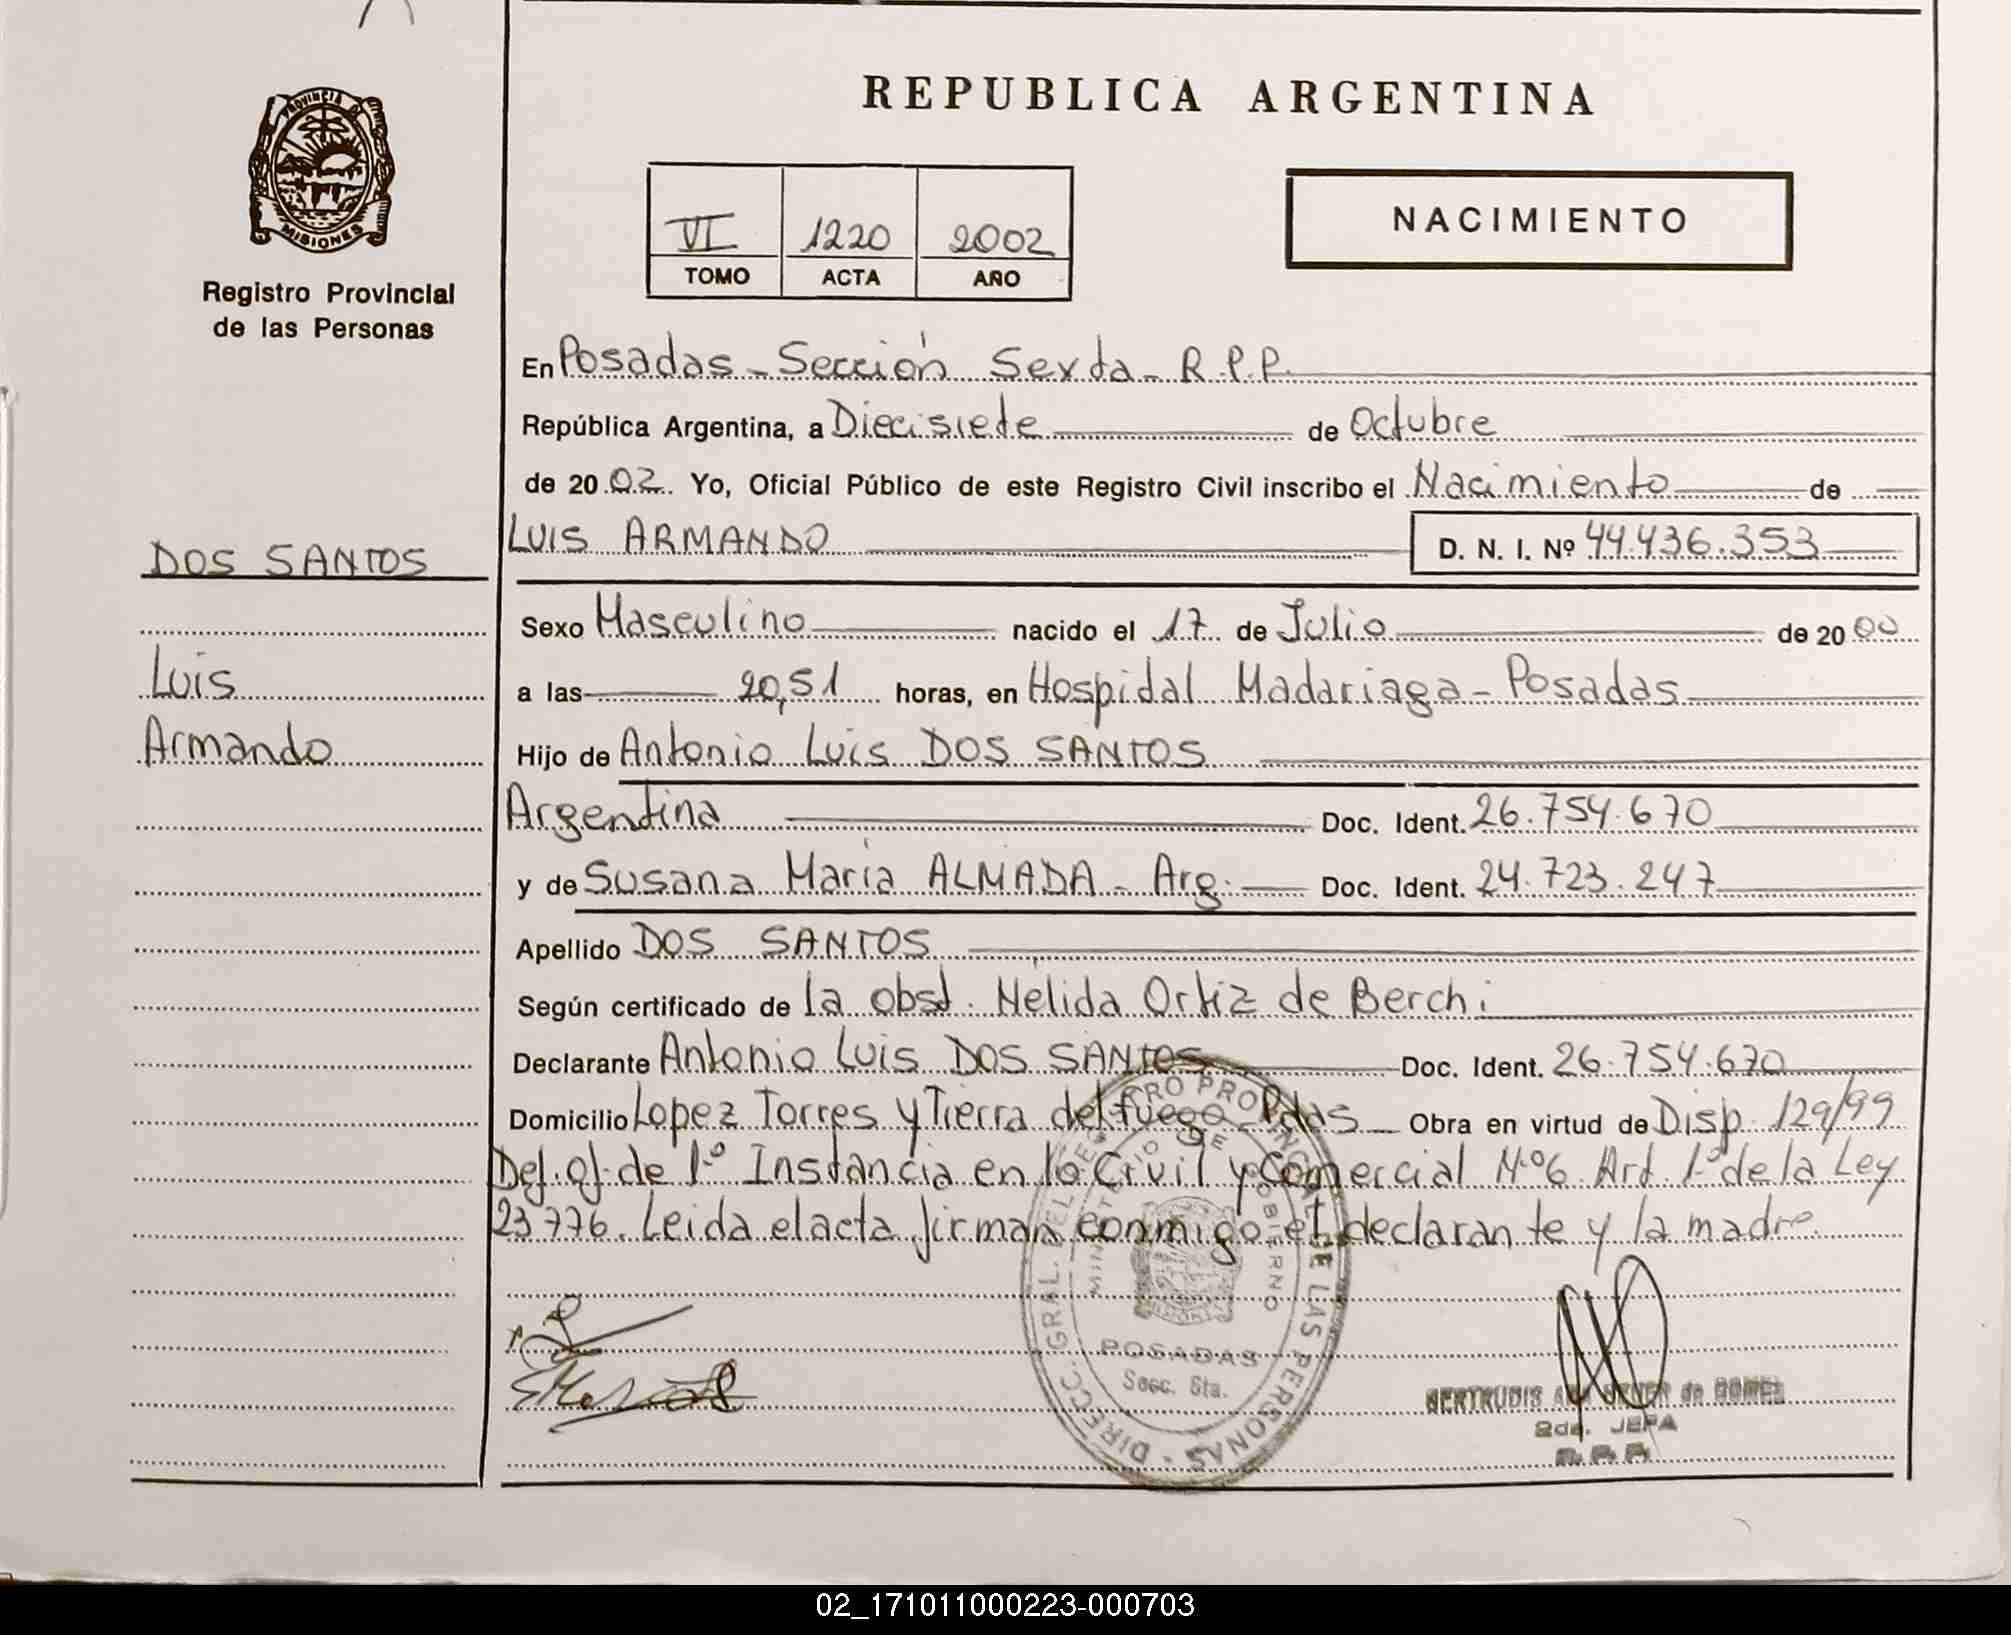 REPUBLICA ARGENTINA
PROVINCIA DE
MISIONES
Registro Provincial
de las Personas
VI 1220 2002
TOMO ACTA AÑO
NACIMIENTO
En Posadas - Sección Sexta - R.P.P.
República Argentina, a Diecisiete de Octubre
de 2002. Yo, Oficial Público de este Registro Civil inscribo el Nacimiento de
LUIS ARMANDO D. N. I. Nº 44.436.353
DOS SANTOS
Luis
Armando
Sexo Masculino nacido el 17 de Julio de 2000
a las 20,51 horas, en Hospital Madariaga - Posadas
Hijo de Antonio Luis DOS SANTOS
Argentina Doc. Ident. 26.754.670
y de Susana María ALMADA - Arg. Doc. Ident. 24.723.247
Apellido DOS SANTOS
Según certificado de la obst. Nélida Ortiz de Berchi
Declarante Antonio Luis DOS SANTOS Doc. Ident. 26.754.670
Domicilio Lopez Torres y Tierra del fuego - Pdas - Obra en virtud de Disp. 129/99
Def. of. de 1º Instancia en lo Civil y Comercial Nº 6 Art. 1º de la Ley
23776. Leida el acta firman conmigo el declarante y la madre.
DIRECC. GRAL. DEL REGISTRO PROVINCIAL DE LAS PERSONAS
MINISTERIO DE GOBIERNO
POSADAS
Secc. 6ta.
GERTRUDIS de GOMEZ
2da. JEFA
R.P.P.
02_171011000223-000703